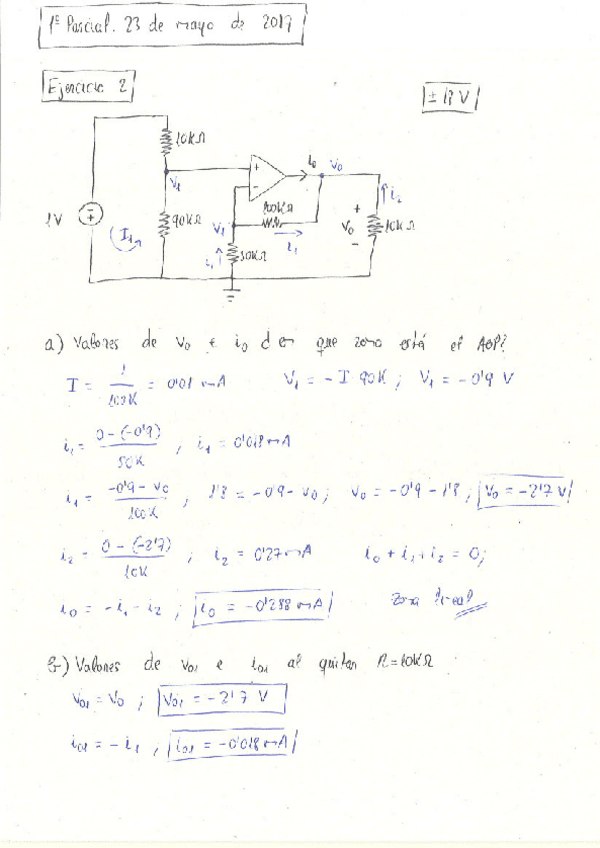 1º Parcial. 23 de mayo de 2017
Ejercicio 2
± 13 V
10KΩ
V1
+
-
io
Vo
100KΩ
i2
1V
I1
90KΩ
V1
i1
50KΩ
i1
+
Vo
-
10KΩ
a) Valores de Vo e io ¿ en que zona está el AOP?
I = 1 / 100K = 0'01 mA    V1 = - I 90K ; V1 = -0'9 V
i1 = 0-(-0'9) / 50K , i1 = 0'018 mA
i1 = -0'9 - Vo / 100K ; 1'8 = -0'9 - Vo ; Vo = -0'9 - 1'8 ; Vo = -2'7 V
i2 = 0-(-2'7) / 10K ; i2 = 0'27 mA    io + i1 + i2 = 0;
io = -i1 - i2 ; io = -0'288 mA    Zona lineal
b) Valores de Vo1 e io1 al quitar R=10KΩ
Vo1 = Vo ; Vo1 = -2'7 V
io1 = -i1 , io1 = -0'018 mA